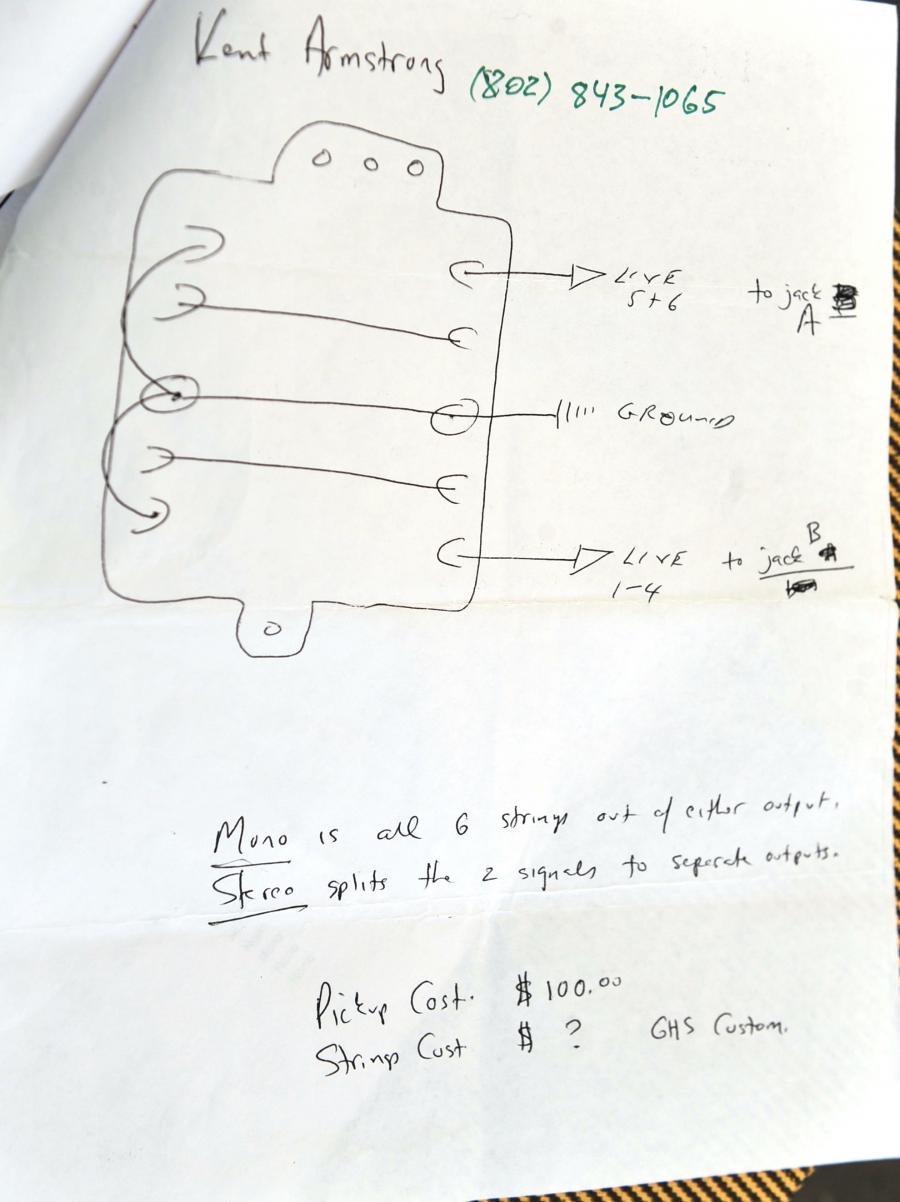 Kent Armstrong (802) 843-1065
LIVE
5+6
to jack
A
GROUND
B
LIVE
to jack
1-4
Mono is all 6 strings out of either output.
Stereo splits the 2 signals to seperate outputs.
Pickup Cost. $ 100.00
Strings Cost $ ? GHS Custom.